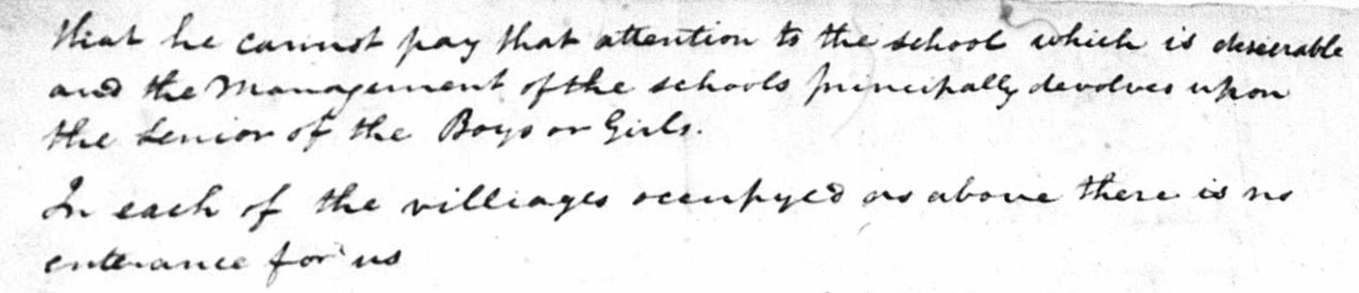 that he cannot pay that attention to the school which is desierable
and the Management of the schools principally devolves upon
the Senior of the Boys or Girls.
In each of the villiages occupyed as above there is no
enterance for us